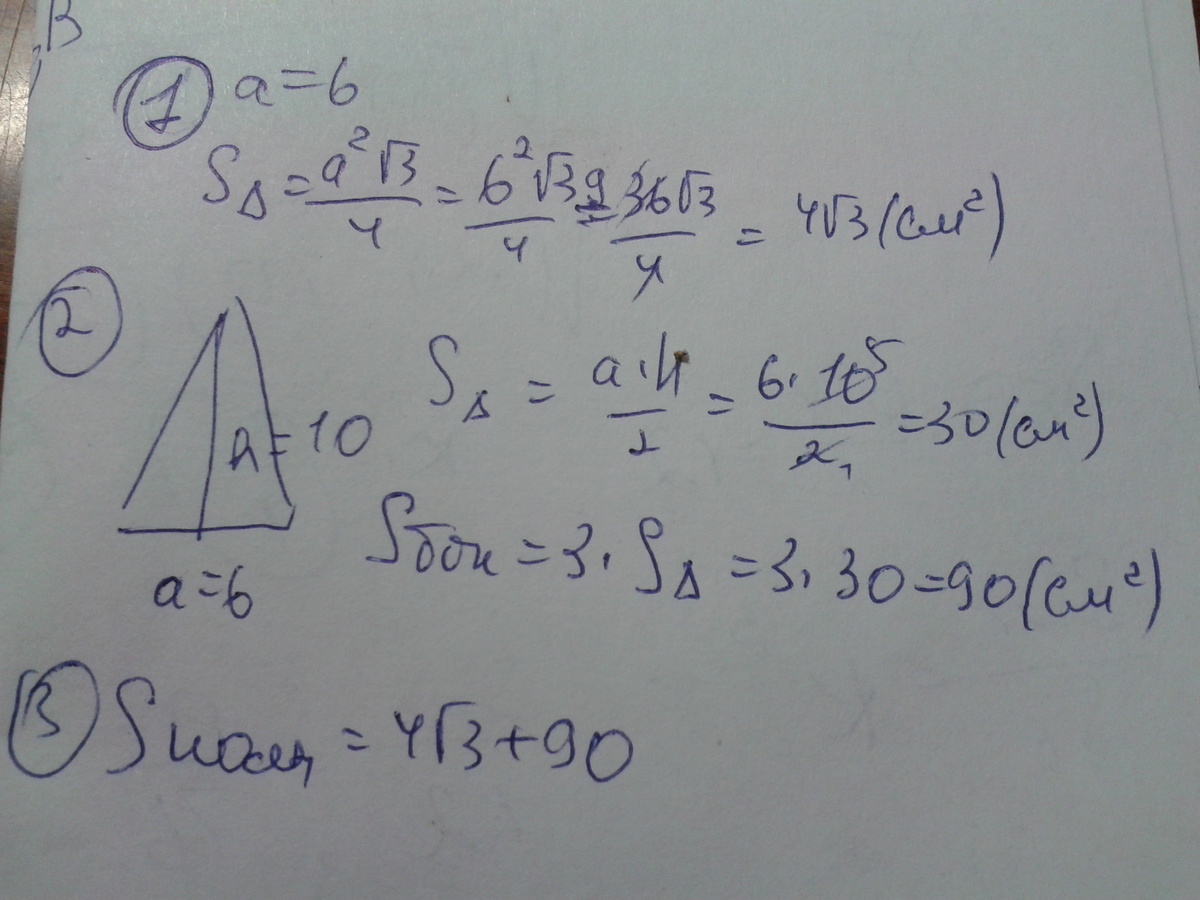 В
① a=6
S△ = a²√3/4 = 6²√3/4 = 9 36√3/4 = 4√3 (см²)
② h=10
a=6
S△ = a·h/2 = 6·10 5/2 1 = 30 (см²)
Sбок = 3·S△ = 3·30 = 90 (см²)
③ Sполн = 4√3+90